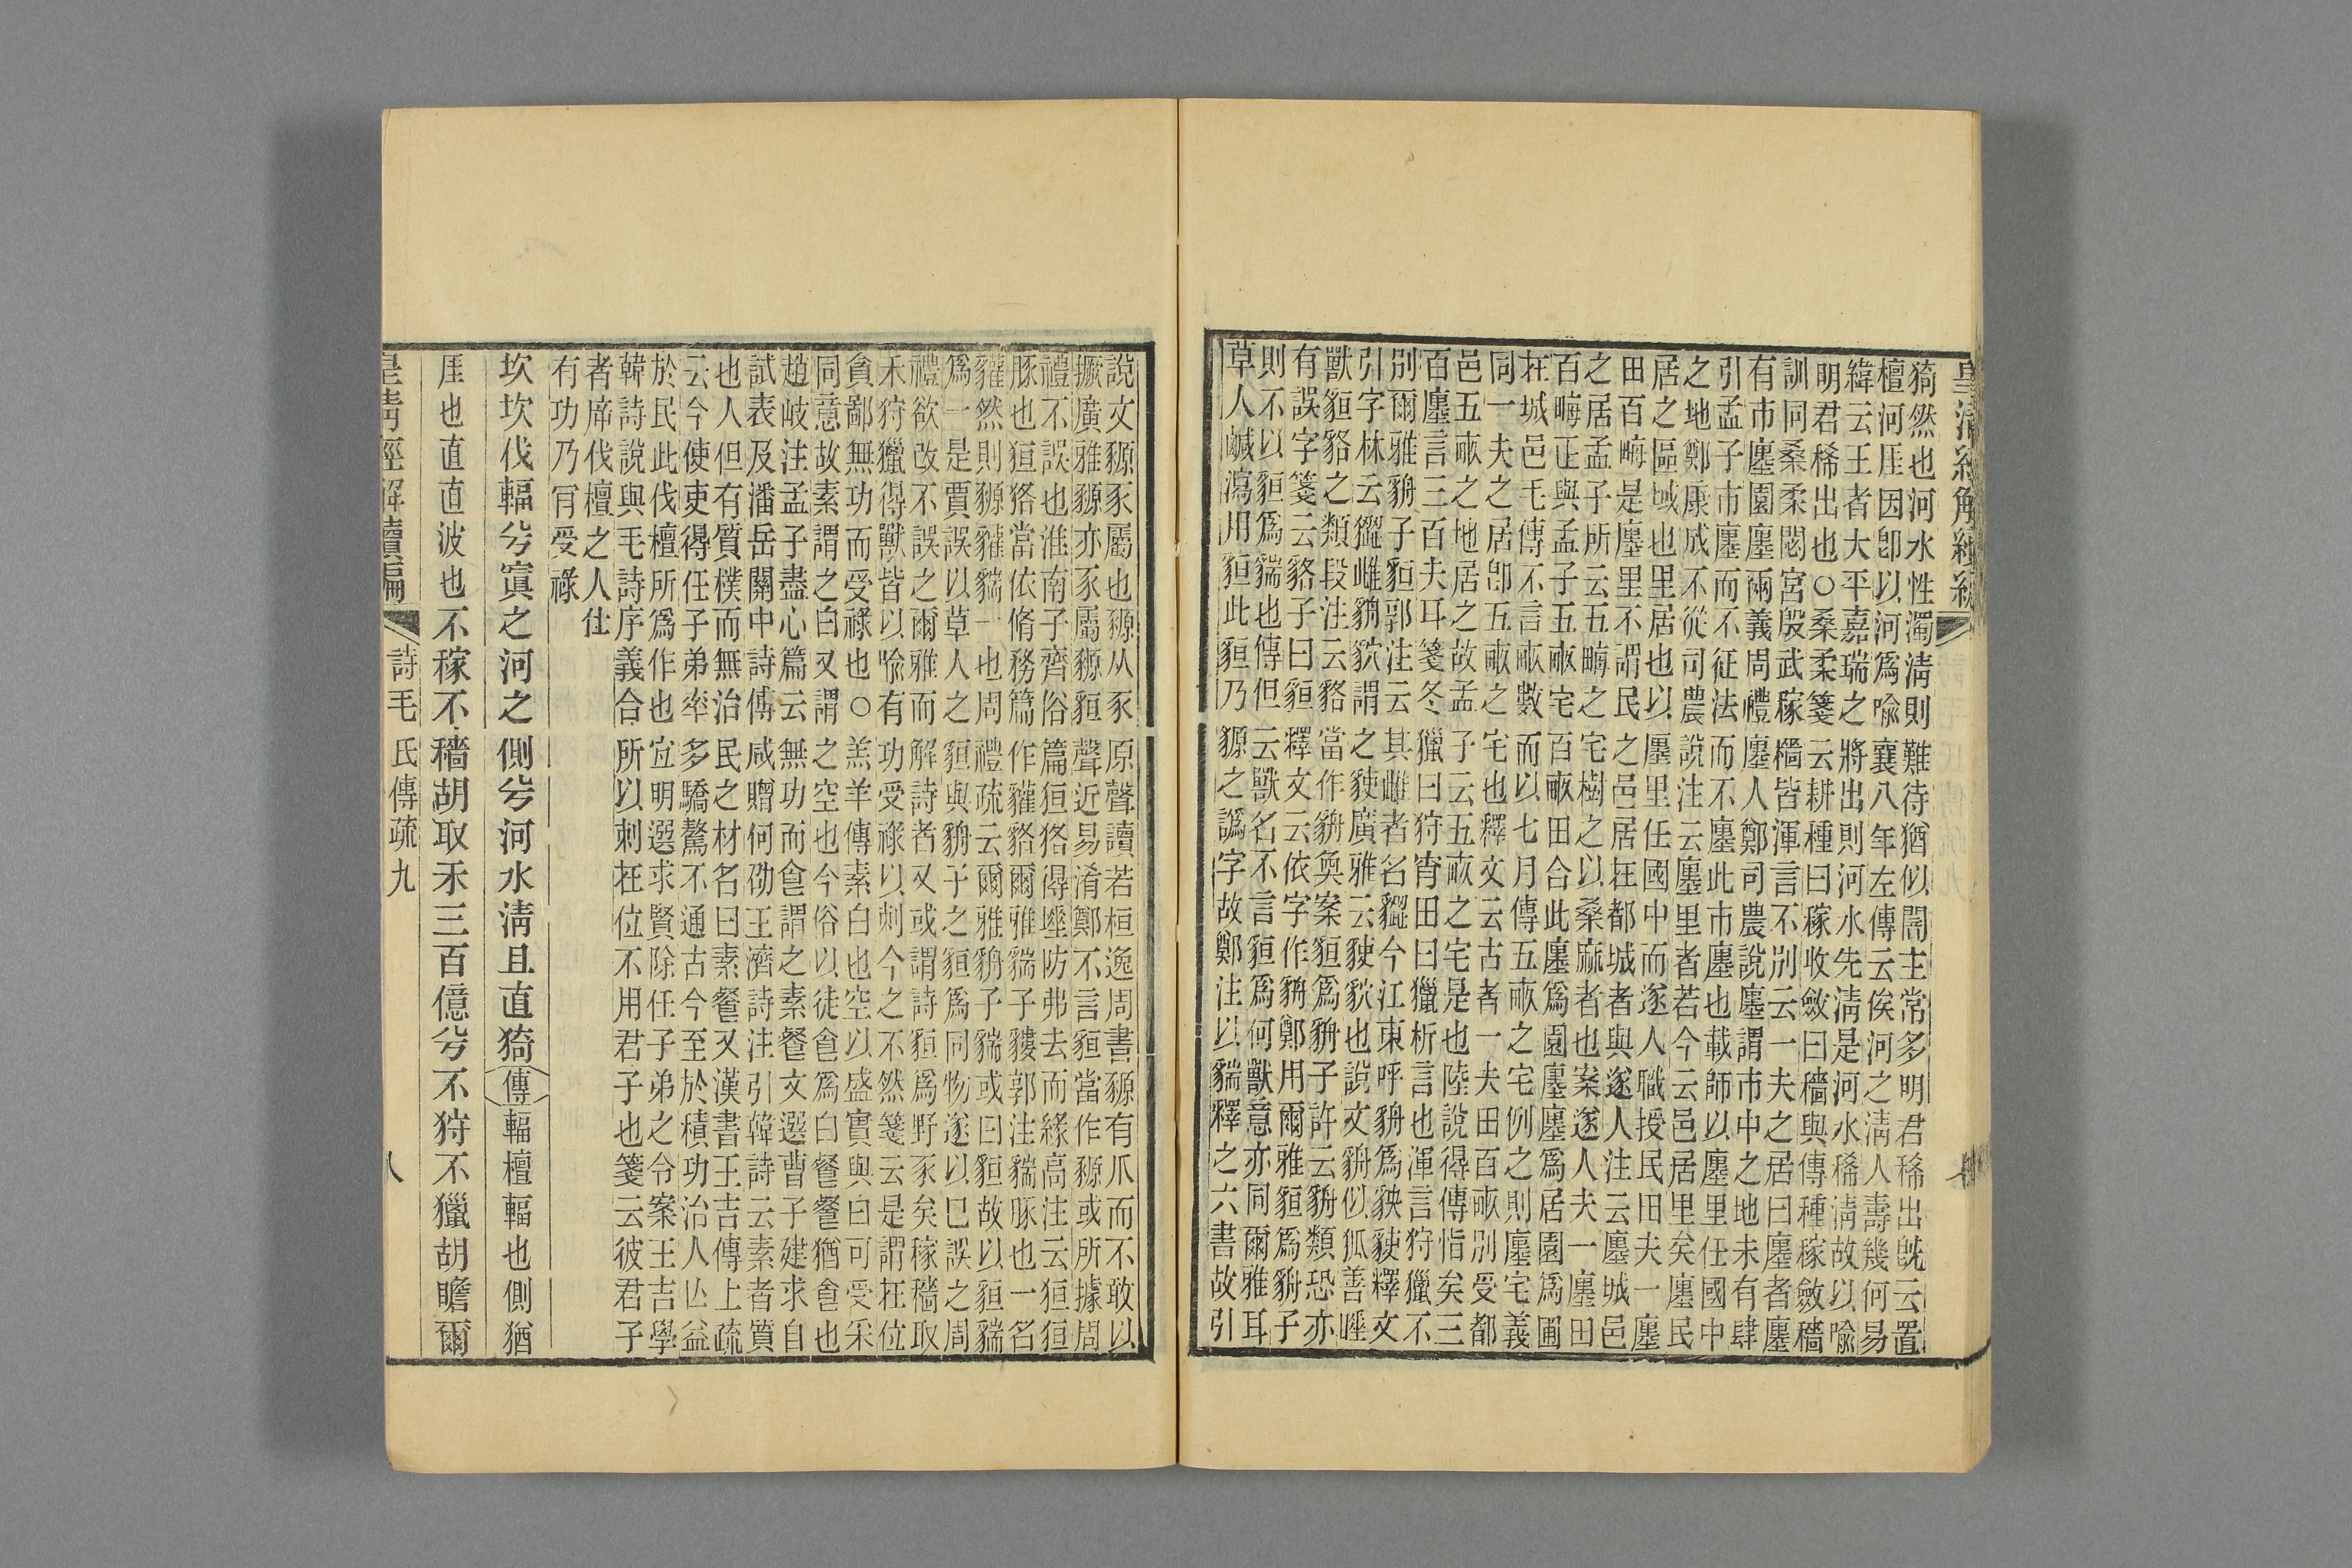 皇清經解續編
猗然也河水性濁淸則難待猶似闇主常多明君稀出旣云置
檀河厓因卽以河爲喩襄八年左傳云俟河之淸人壽幾何易
緯云王者大平嘉瑞之將出則河水先淸是河水稀淸故以喩
明君稀出也○桑柔箋云耕種曰稼收斂曰穡與傳種稼斂穡
訓同桑柔閟宮殷武稼穡皆渾言不別云一夫之居曰廛者廛
有市廛園廛爾義周禮廛人鄭司農說廛謂市中之地未有肆
引孟子市廛而不征法而不廛此市廛也載師以廛里任國中
之地鄭康成不從司農說注云廛里者若今云邑居里矣廛民
居之區域也里居也以廛里任國中而遂人職授民田夫一廛
田百畮是廛里不謂民之邑居在都城者與遂人注云廛城邑
之居孟子所云五畮之宅樹之以桑麻者也案遂人夫一廛田
百畮正與孟子五畞宅百畞田合此廛爲園廛廛爲居園爲圃
在城邑毛傳不言畞數而以七月傳五畞之宅例之則廛宅義
同一夫之居卽五畞之宅也釋文云古者一夫田百畞別受都
邑五畞之地居之故孟子云五畞之宅是也陸說得傳恉矣三
百廛言三百夫耳箋冬獵曰狩宵田曰獵析言也渾言狩獵不
別爾雅貈子貆郭注云其雌者名今江東呼貈爲貄釋文
引字林云雌貈貁謂之貄廣雅云貄貁也說文貈似狐善睡
獸貆貉之類段注云貉當作貈奐案貆爲貈子許云貈類恐亦
有誤字箋云貉子曰貆釋文云依字作貈鄭用爾雅貆爲貈子
則不以貆爲貒也傳但云獸名不言貆爲何獸意亦同爾雅耳
草人鹹瀉用貆此貆乃豲之譌字故鄭注以貒釋之六書故引
說文豲豕屬也豲从豕原聲讀若桓逸周書豲有爪而不敢以
撅廣雅豲亦豕屬豲貆聲近易淆鄭不言貆當作豲或所據周
禮不誤也淮南子齊俗篇狟狢得埵防弗去而緣高注云狟狟
豚也狟狢當依脩務篇作貛貉爾雅貒子貗郭注貒豚也一名
貛然則豲貛貒一也周禮疏云爾雅貈子貒或曰貆故以貆貒
爲一是賈誤以草人之貆與貈子之貆爲同物遂以巳誤之周
禮欲改不誤之爾雅而解詩者又或謂詩貆爲野豕矣稼穡取
禾狩獵得獸皆以喩有功受祿以刺今之不然箋云是謂在位
貪鄙無功而受祿也○羔羊傳素白也空以盛實與白可受采
同意故素謂之白又謂之空也今俗以徒㑹爲白餐餐猶食也
趙岐注孟子盡心篇云無功而食謂之素餐文選曹子建求自
試表及潘岳關中詩傅咸贈何劭王濟詩注引韓詩云素者質
也人但有質樸而無治民之材名曰素餐又漢書王吉傳上疏
云今使吏得任子弟率多驕驁不通古今至於積功治人亾益
於民此伐檀所爲作也宜明選求賢除任子弟之令案王吉學
韓詩說與毛詩序義合所以刺在位不用君子也箋云彼君子
者㡿伐檀之人仕
有功乃肎受祿
坎坎伐輻兮寘之河之側兮河水淸且直猗傳輻檀輻也側猶
厓也直直波也不稼不穡胡取禾三百億兮不狩不獵胡瞻爾
皇清經解續編 詩毛氏傳疏九 八